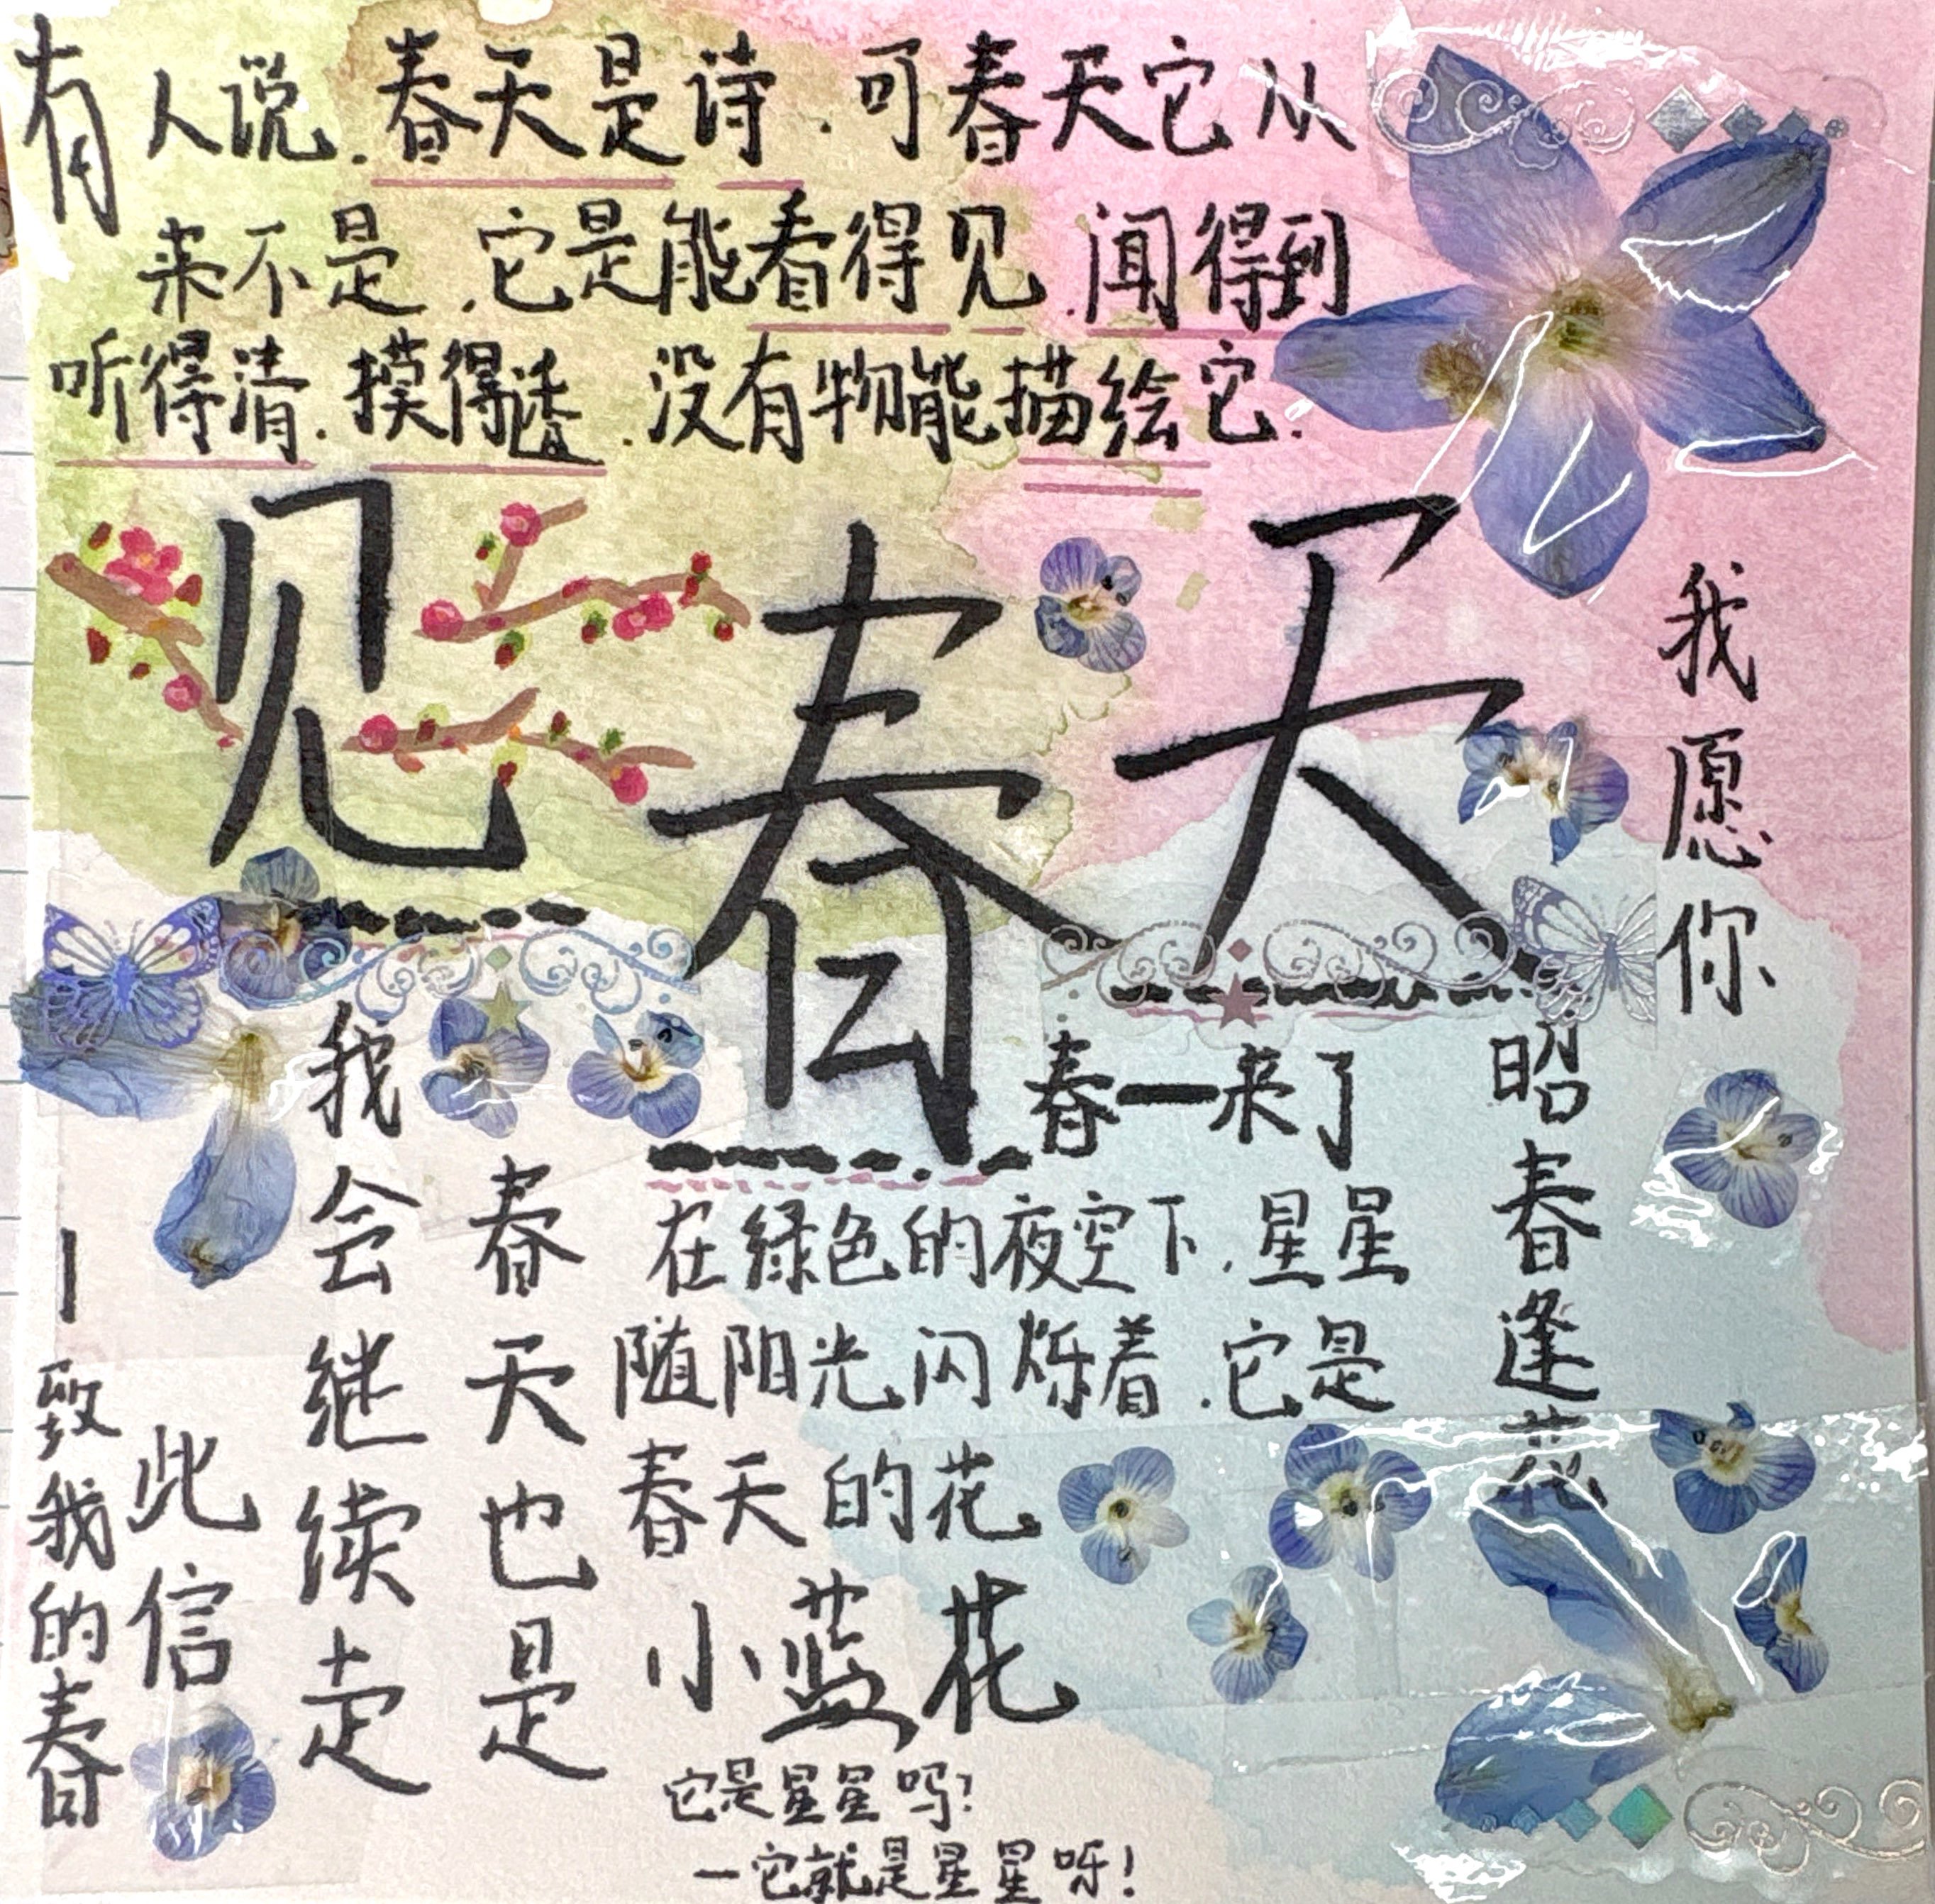 有人说.春天是诗.可春天它从
来不是.它是能看得见.闻得到
听得清.摸得透.没有物能描绘它.
见春天
我愿你
昭春逢花
春一来了
在绿色的夜空下.星星
随阳光闪烁着.它是
春天的花.
小蓝花
它是星星吗?
一它就是星星呀!
春天也是
我会继续走
此信
—致我的春